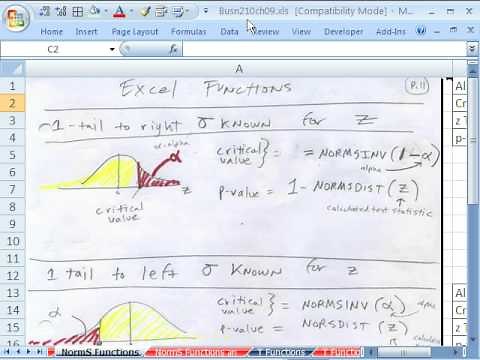 Busn210ch09.xls [Compatibility Mode] - M...
Formulas Data Review View Developer Add-Ins
C2
A
1
2
3
4
5
6
7
8
9
10
11
12
13
14
15
16
Excel Functions
p.11
1-tail to right σ known for z
α=alpha
α
critical value } = = NORMSINV(1-α)
alpha
z
critical value
p-value = 1 - NORMSDIST(z)
calculated test statistic
1 tail to left σ known for z
α
critical value } = NORMSINV(α)
alpha
p-value = NORSDIST(z)
calculate
Al
Cr
z T
p-
Al
Cr
z T
NormS Functions
NormS Functions an
T Functions
T Functi